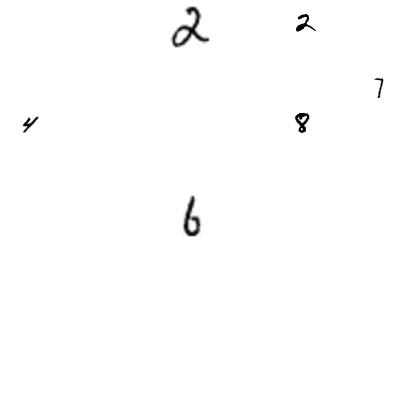 2 2
7
4 8
6